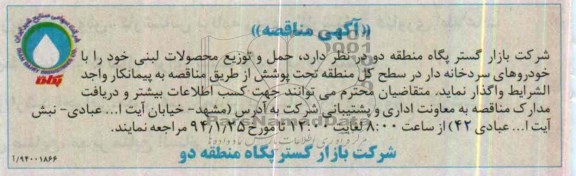 «آگهی مناقصه»
شرکت بازار گستر پگاه منطقه دو در نظر دارد، حمل و توزیع محصولات لبنی خود را با
خودروهای سردخانه دار در سطح کل منطقه تحت پوشش از طریق مناقصه به پیمانکار واجد
الشرایط واگذار نماید. متقاضیان محترم می توانند جهت کسب اطلاعات بیشتر و دریافت
مدارک مناقصه به معاونت اداری و پشتیبانی شرکت به آدرس (مشهد- خیابان آیت ا... عبادی- نبش
آیت ا... عبادی ۴۲) از ساعت ۸:۰۰ لغایت ۱۳:۰۰ تا مورخ ۹۴/۱/۲۵ مراجعه نمایند.
شرکت بازار گستر پگاه منطقه دو
۱/۹۴۰۰۱۸۶۶
شرکت سهامی صنایع شیر ایران
پگاه